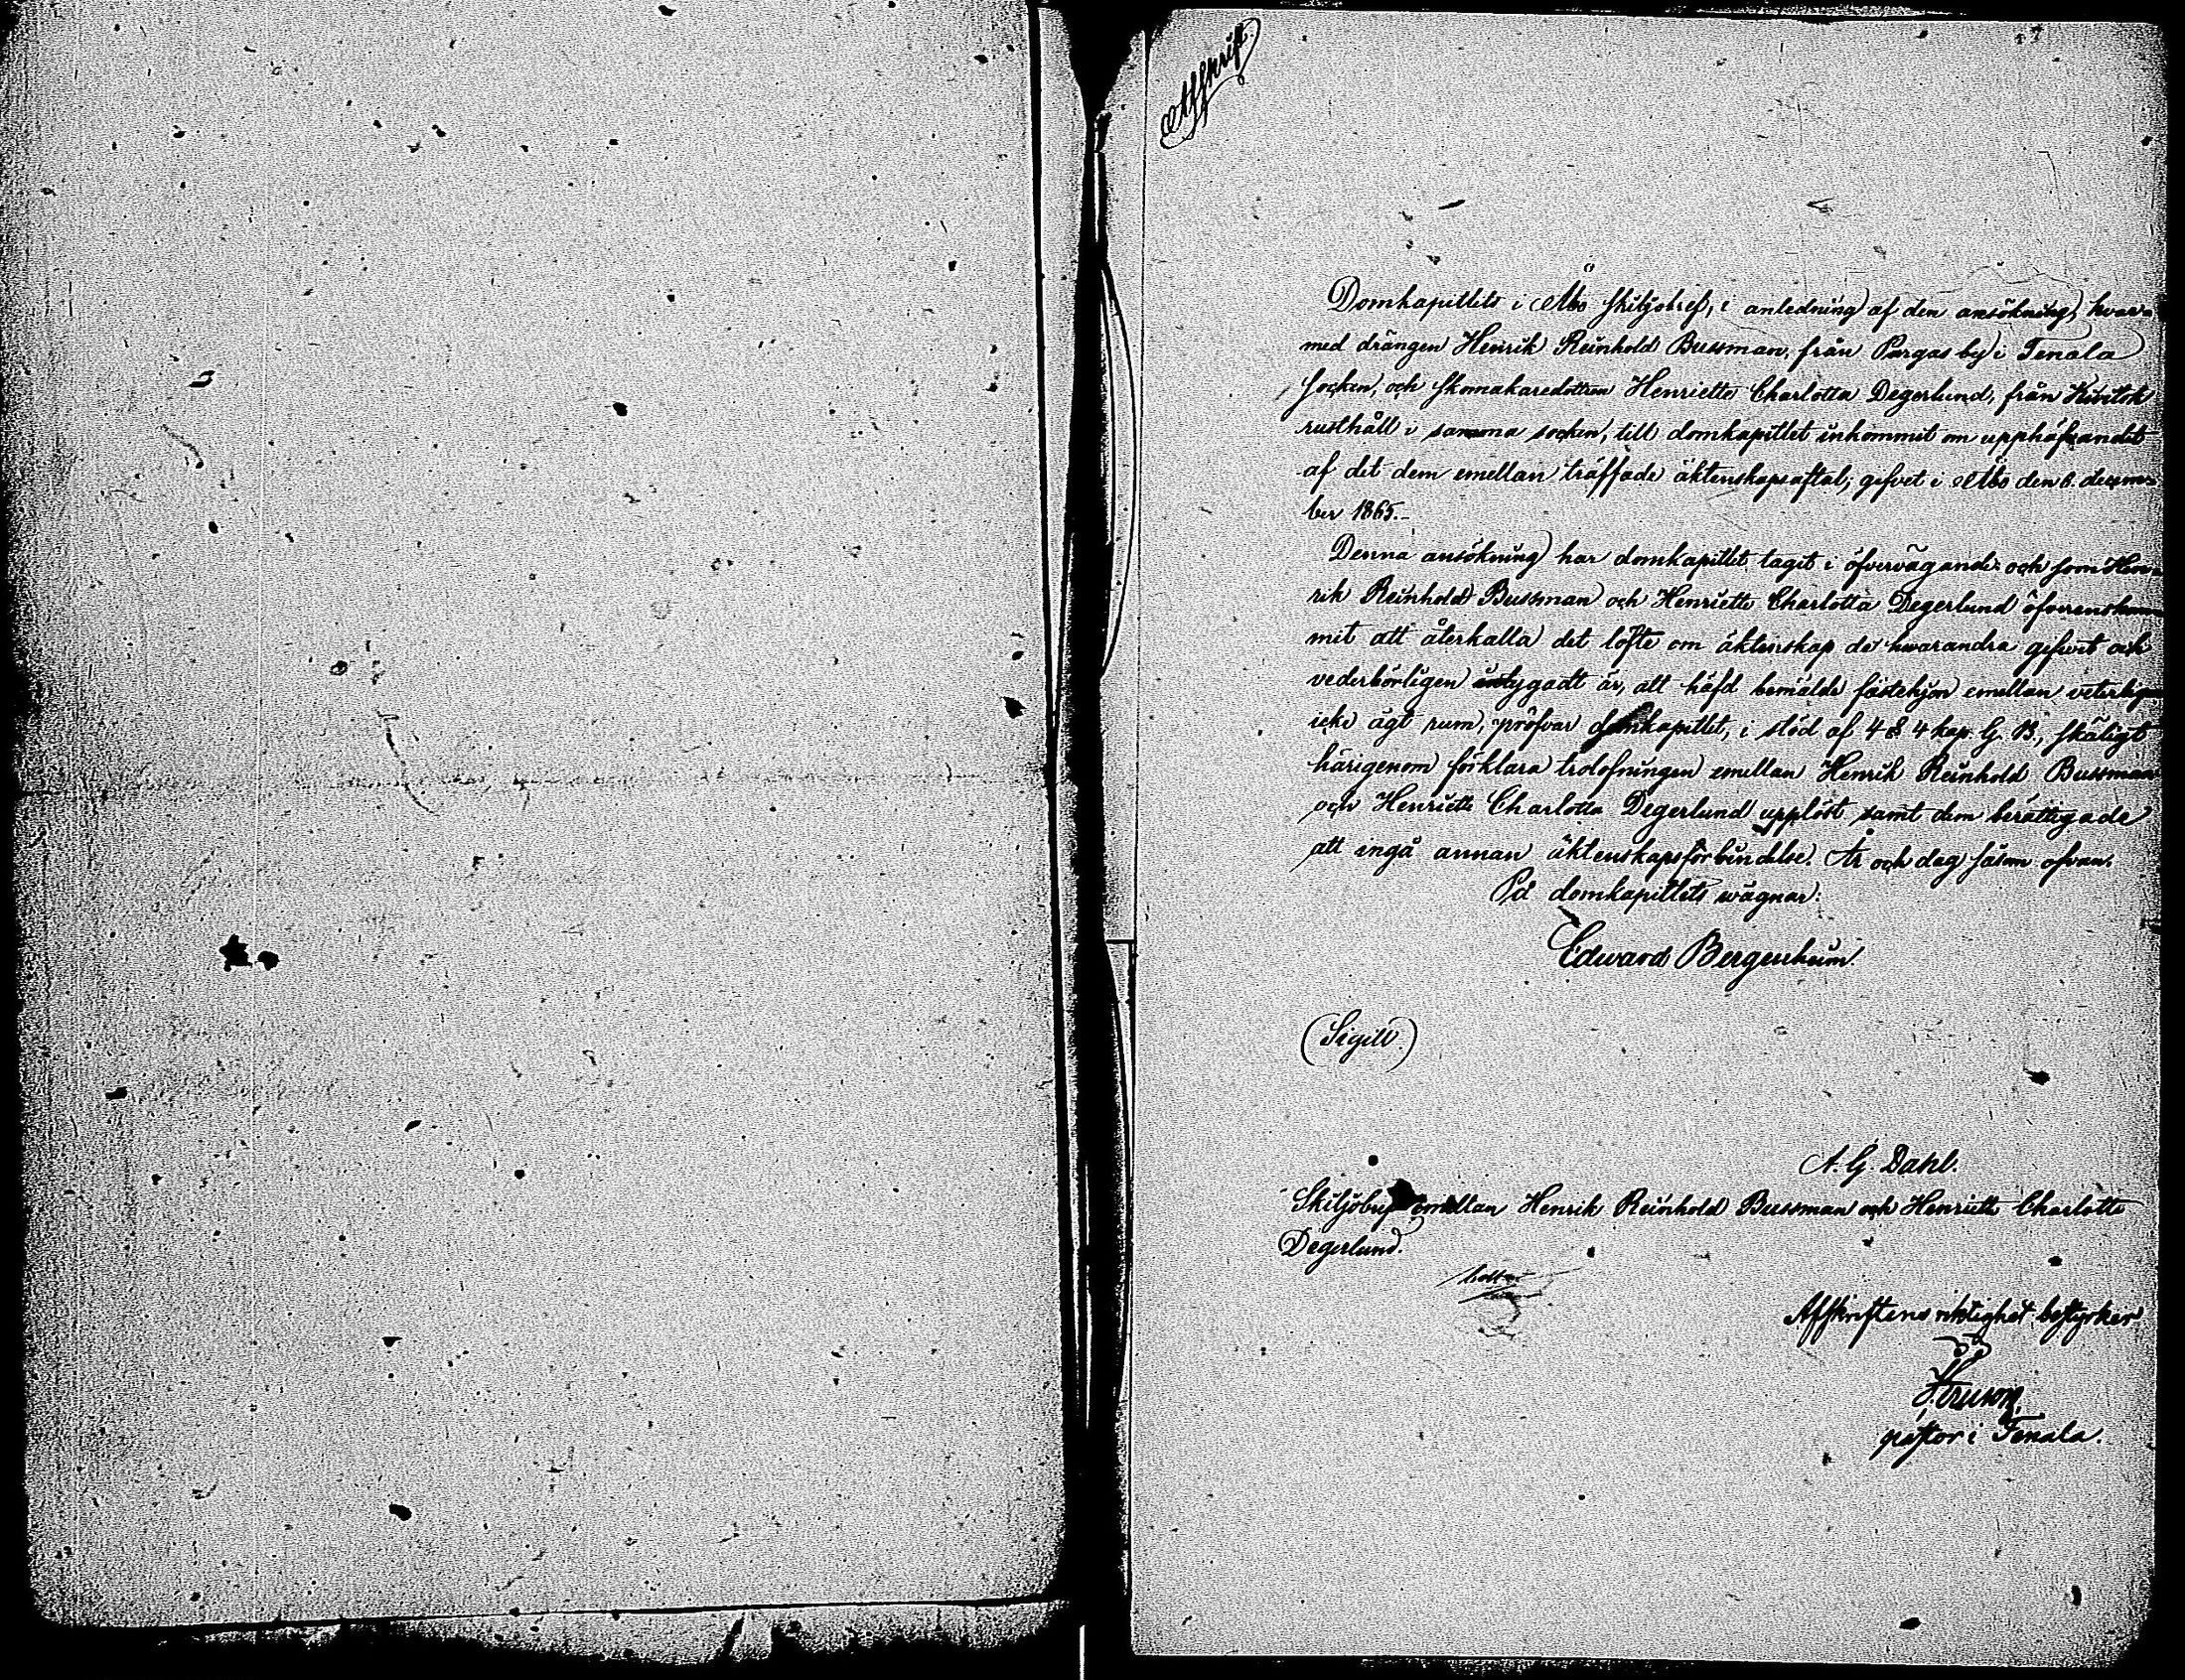 Afskrift.
Domkapitlets i Åbo skiljobref, i anledning af den ansökning, hvar-
med drängen Henrik Reinhold Bussman, från Pargas by i Tenala
socken, och skomakaredottren Henriette Charlotta Degerlund, från
rusthåll i samma socken, till domkapitlet inkommit om upphäfvandet
af det dem emellan träffade äktenskapsaftal; gifvet i Åbo den 6. decem-
ber 1865.
Denna ansökning har domkapitlet tagit i öfvervägande: och som Hen-
rik Reinhold Bussman och Henriette Charlotta Degerlund öfverenskom-
mit att återkalla det löfte om äktenskap de hvarandra gifvit och
vederbörligen intygadt är, att häfd bemälde fästehjon emellan veterligen
icke ägt rum; pröfvar domkapitlet, i stöd af 4 § 4 kap. G. B., skäligt
härigenom förklara trolofningen emellan Henrik Reinhold Bussman
och Henriette Charlotta Degerlund upplöst samt dem berättigade
att ingå annan äktenskapsförbindelse. År och dag såsom ofvan.
På domkapitlets wägnar:
Edward Bergenheim.
(Sigill.)
A. G. Dahl.
Skiljobref emellan Henrik Reinhold Bussman och Henriette Charlotta
Degerlund.
Afskriftens riktighet bestyrker
pastor i Tenala.